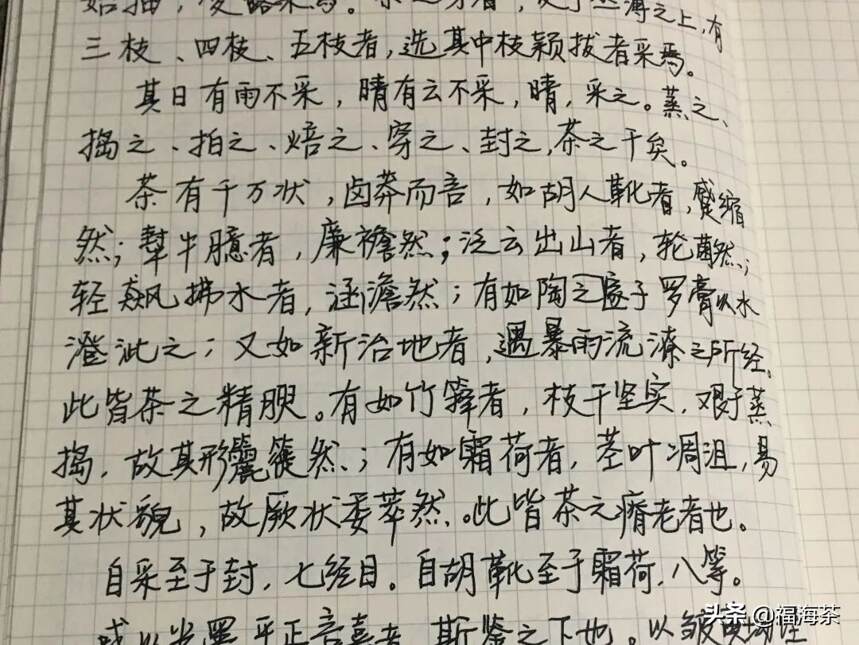 三枝、四枝、五枝者,选其中枝颖拔者采焉。
其日有雨不采,晴有云不采,晴,采之。蒸之、
捣之、拍之、焙之、穿之、封之,茶之干矣。
茶有千万状,卤莽而言,如胡人靴者,蹙缩
然;犎牛臆者,廉襜然;泛云出山者,轮菌然;
轻飙拂水者,涵澹然;有如陶之家子罗膏以水
澄泚之;又如新治地者,遇暴雨流潦之所经。
此皆茶之精腴。有如竹箨者,枝干坚实,艰于蒸
捣,故其形簏簁然;有如霜荷者,茎叶凋沮,易
其状貌,故厥状委萃然。此皆茶之瘠老者也。
自采至于封,七经目。自胡靴至于霜荷,八等。
或以光黑平正言嘉者,斯鉴之下也。以皱黄
头条 @福海茶